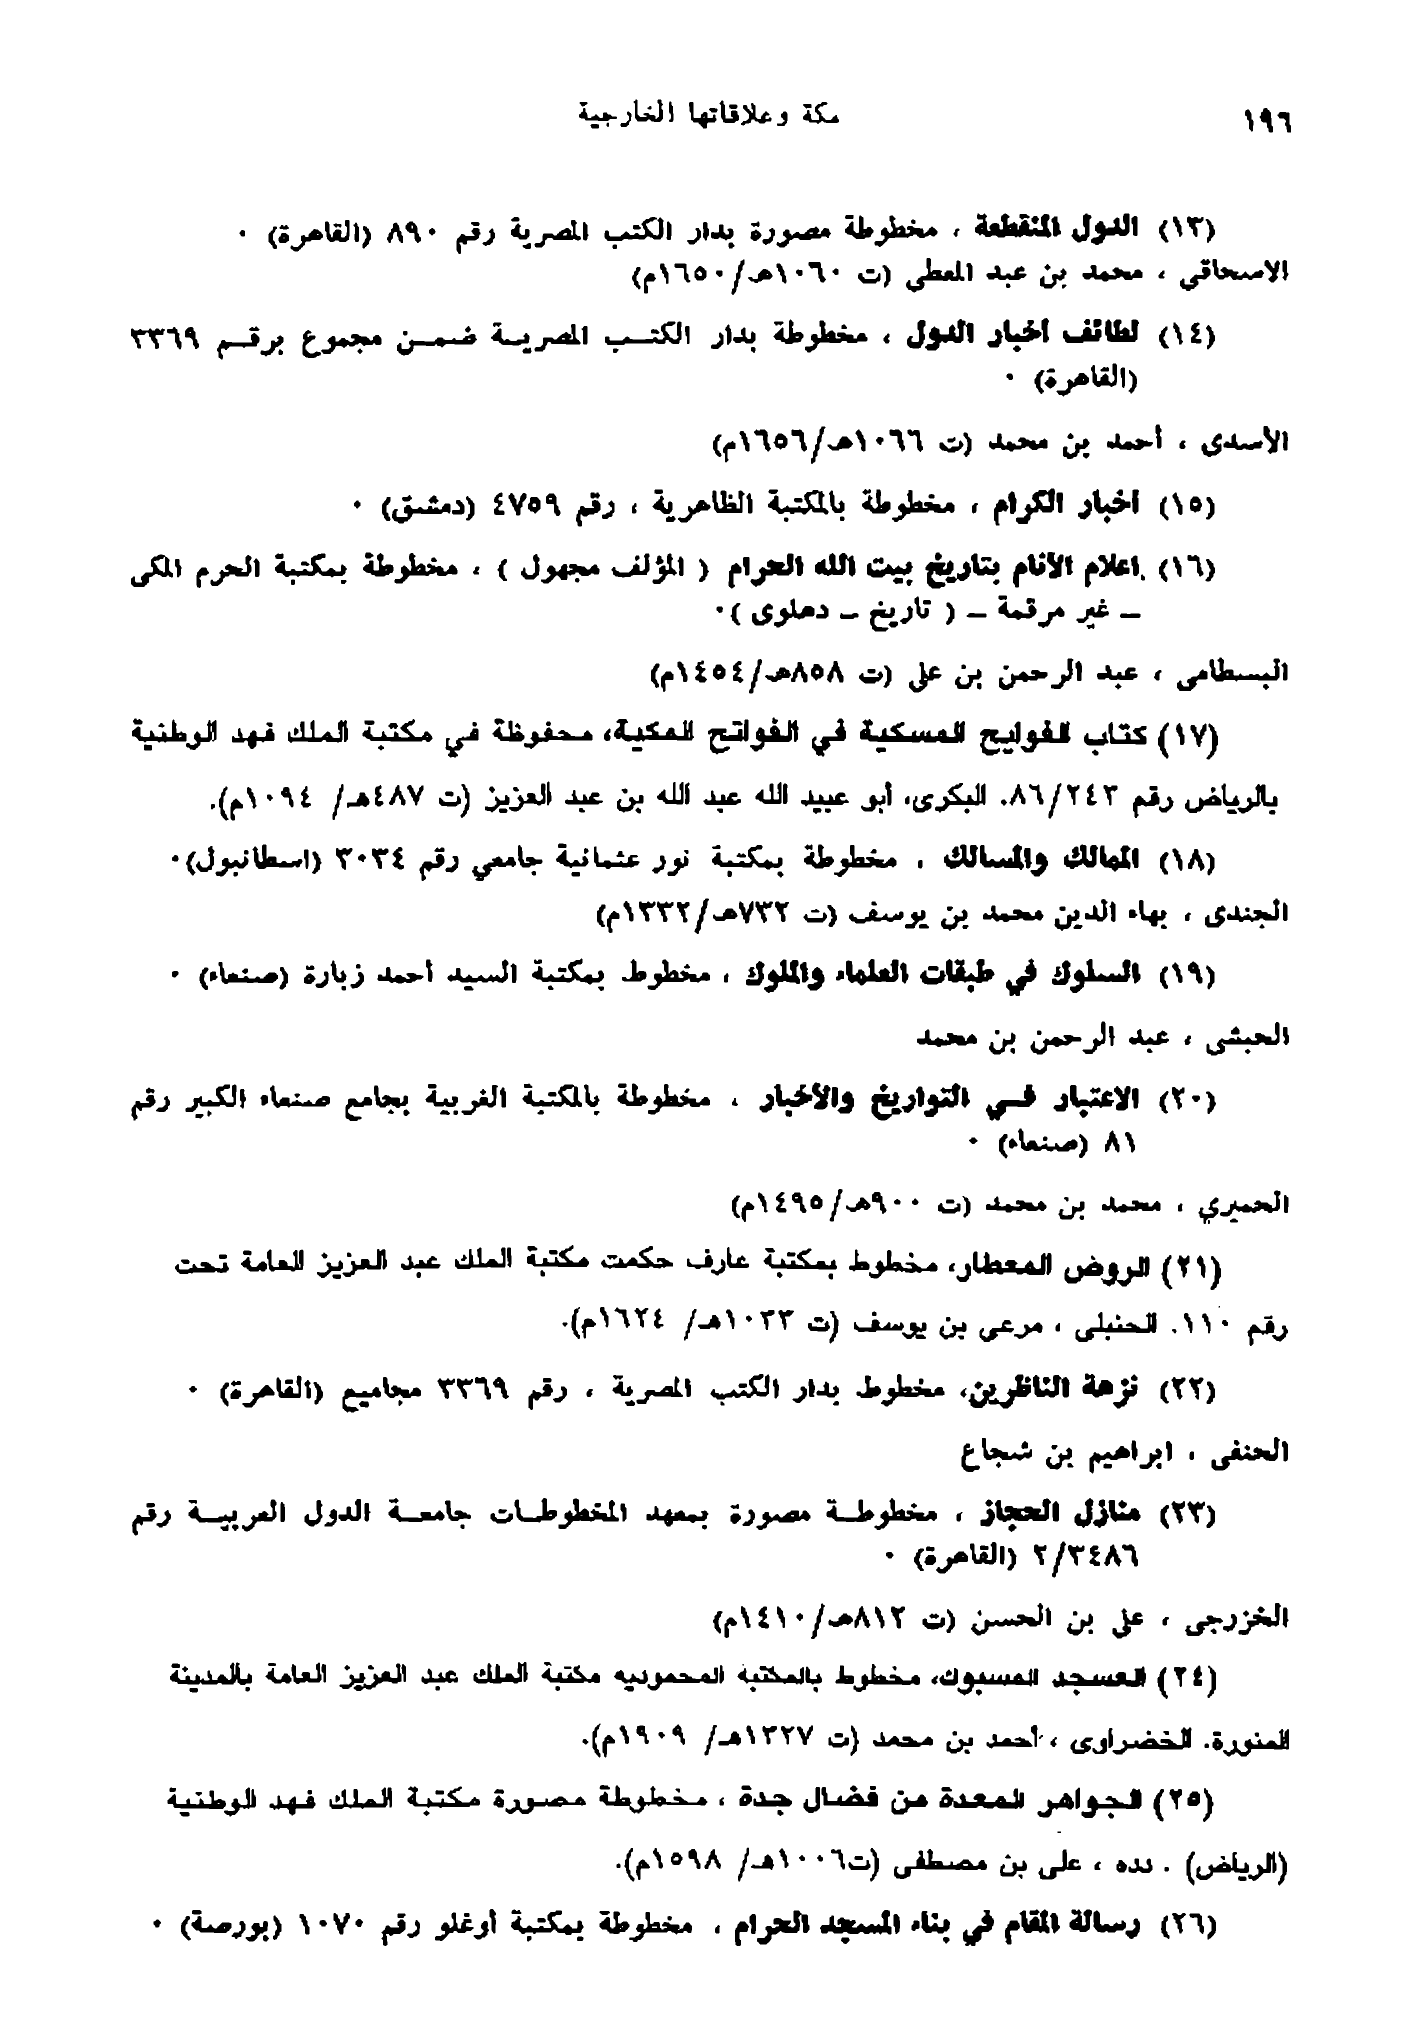 ١٩٦
مكة وعلاقاتها الخارجية
(١٣) الدول المنقطعة ، مخطوطة مصورة بدار الكتب المصرية رقم ٨٩٠ (القاهرة) ٠
الاسحاقي ، محمد بن عبد المعطي (ت ١٠٦٠هـ/١٦٥٠م)
(١٤) لطائف اخبار الدول ، مخطوطة بدار الكتـب المصريـة ضمـن مجموع برقـم ٣٣٦٩
(القاهرة) ٠
الأسدى ، أحمد بن محمد (ت ١٠٦٦هـ/١٦٥٦م)
(١٥) اخبار الكرام ، مخطوطة بالمكتبة الظاهرية ، رقم ٤٧٥٩ (دمشق) ٠
(١٦) اعلام الأنام بتاريخ بيت الله الحرام ( المؤلف مجهول ) ، مخطوطة بمكتبة الحرم المكى
– غير مرقمة – ( تاريخ – دهلوى )٠
البسطامى ، عبد الرحمن بن على (ت ٨٥٨هـ/١٤٥٤م)
(١٧) كتاب الفوايح المسكية في الفواتح المكية، محفوظة في مكتبة الملك فهد الوطنية
بالرياض رقم ٨٦/٢٤٣. البكرى، أبو عبيد الله عبد الله بن عبد العزيز (ت ٤٨٧هـ/ ١٠٩٤م).
(١٨) الممالك والمسالك ، مخطوطة بمكتبة نور عثمانية جامعي رقم ٣٠٣٤ (اسطانبول)٠
الجندى ، بهاء الدين محمد بن يوسف (ت ٧٣٢هـ/١٣٣٢م)
(١٩) السلوك في طبقات العلماء والملوك ، مخطوط بمكتبة السيد أحمد زبارة (صنعاء) ٠
الحبشى ، عبد الرحمن بن محمد
(٢٠) الاعتبار فـي التواريخ والأخبار ، مخطوطة بالمكتبة الغربية بجامع صنعاء الكبير رقم
٨١ (صنعاء) ٠
الحميري ، محمد بن محمد (ت ٩٠٠هـ/١٤٩٥م)
(٢١) الروض المعطار، مخطوط بمكتبة عارف حكمت مكتبة الملك عبد العزيز العامة تحت
رقم ١١٠. الحنبلى ، مرعى بن يوسف (ت ١٠٣٣هـ/ ١٦٢٤م).
(٢٢) نزهة الناظرين، مخطوط بدار الكتب المصرية ، رقم ٣٣٦٩ مجاميع (القاهرة) ٠
الحنفى ، ابراهيم بن شجاع
(٢٣) منازل الحجاز ، مخطوطـة مصورة بمعهد المخطوطـات جامعـة الدول العربيـة رقم
٢/٣٤٨٦ (القاهرة) ٠
الخزرجى ، على بن الحسن (ت ٨١٢هـ/١٤١٠م)
(٢٤) العسجد المسبوك، مخطوط بالمكتبة المحموديه مكتبة الملك عبد العزيز العامة بالمدينة
المنورة. الخضراوى ، أحمد بن محمد (ت ١٣٢٧هـ/ ١٩٠٩م).
(٢٥) الجواهر المعدة من فضال جدة ، مخطوطة مصورة مكتبة الملك فهد الوطنية
(الرياض) . دده ، على بن مصطفى (ت١٠٠٦هـ/ ١٥٩٨م).
(٢٦) رسالة المقام في بناء المسجد الحرام ، مخطوطة بمكتبة أوغلو رقم ١٠٧٠ (بورصة) ٠